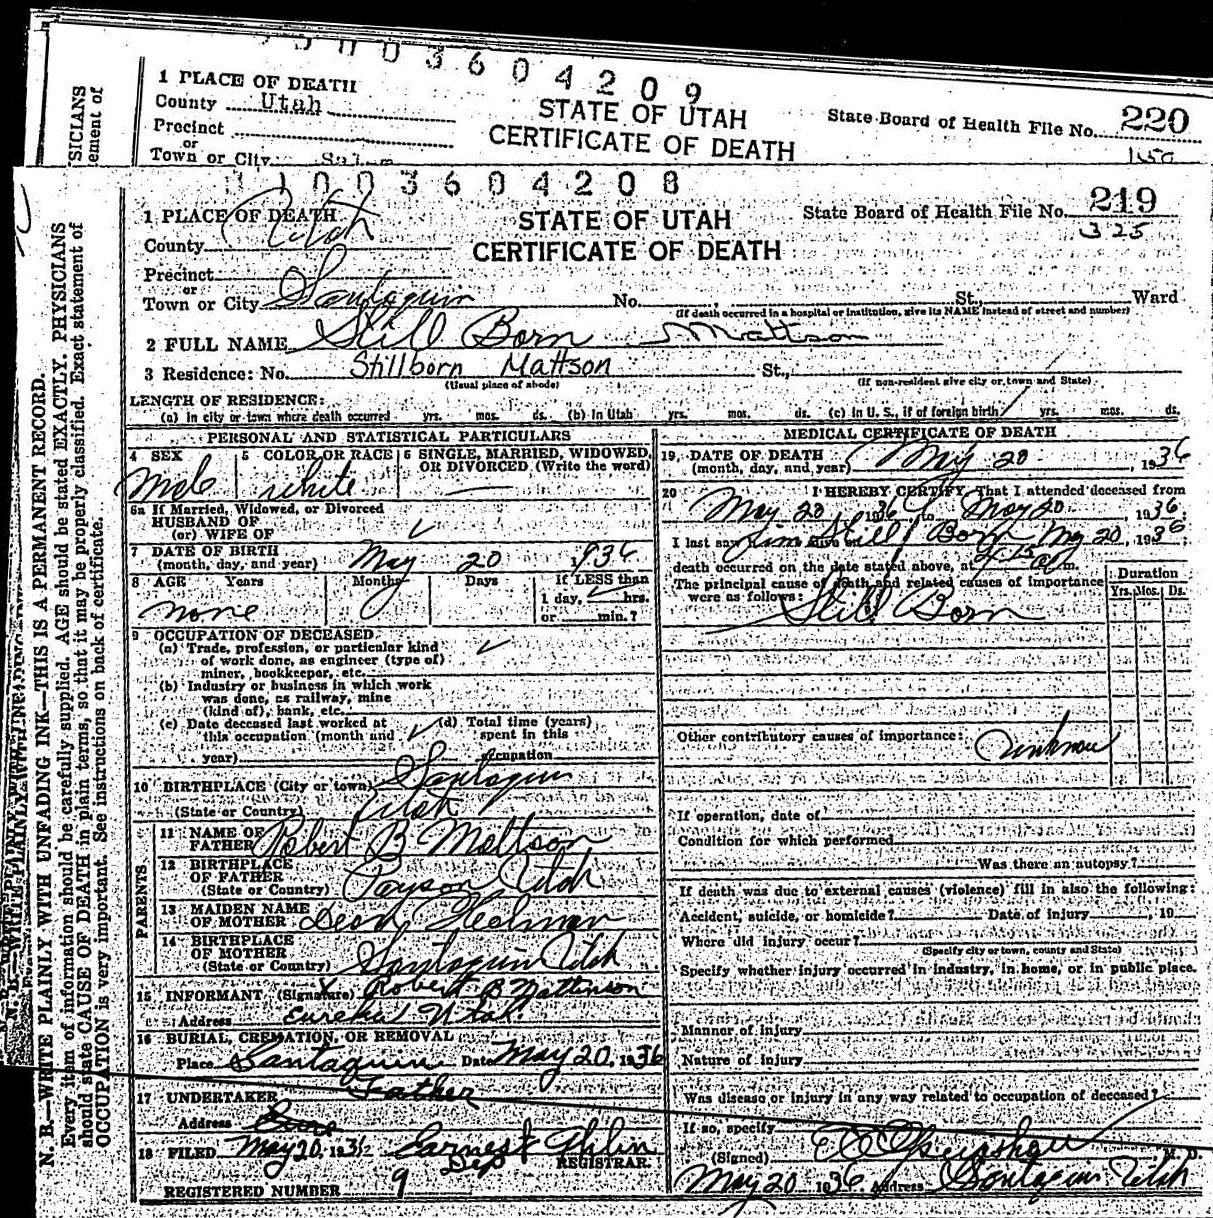 3604209
1 PLACE OF DEATH
County Utah
STATE OF UTAH
State Board of Health File No. 220
Precinct
CERTIFICATE OF DEATH
or
Town or City
31003604208
1 PLACE OF DEATH
STATE OF UTAH
State Board of Health File No. 219
325
County Utah
CERTIFICATE OF DEATH
Precinct
or
Town or City Santaquin No. , St., Ward
(If death occurred in a hospital or institution, give its NAME instead of street and number)
2 FULL NAME Still Born Mattson
3 Residence: No. Stillborn Mattson St.,
(Usual place of abode) (If non-resident give city or town and State)
LENGTH OF RESIDENCE:
(a) in city or town where death occurred yrs. mos. ds. (b) In Utah yrs. mos. ds. (c) In U. S., if of foreign birth yrs. mos. ds.
PERSONAL AND STATISTICAL PARTICULARS
4 SEX
5 COLOR OR RACE
6 SINGLE, MARRIED, WIDOWED, OR DIVORCED (Write the word)
white
6a If Married, Widowed, or Divorced
HUSBAND OF
(or) WIFE OF
7 DATE OF BIRTH
(month, day, and year) May 20 1936
8 AGE Years Months Days If LESS than
1 day, hrs.
or min.?
none
9 OCCUPATION OF DECEASED
(a) Trade, profession, or particular kind
of work done, as engineer (type of)
miner, bookkeeper, etc.
(b) Industry or business in which work
was done, as railway, mine
(kind of), bank, etc.
(c) Date deceased last worked at (d) Total time (years)
this occupation (month and spent in this
year) occupation
10 BIRTHPLACE (City or town) Santaquin
(State or Country) Utah
PARENTS
11 NAME OF
FATHER Robert B Mattson
12 BIRTHPLACE
OF FATHER
(State or Country) Payson Utah
13 MAIDEN NAME
OF MOTHER
14 BIRTHPLACE
OF MOTHER
(State or Country) Santaquin Utah
15 INFORMANT (Signature) Robert B Mattinson
Address Eureka Utah.
16 BURIAL, CREMATION, OR REMOVAL
Place Santaquin Date May 20, 1936
17 UNDERTAKER Father
Address
18 FILED May 20, 1936 Earnest Ahlin
Dep REGISTRAR.
REGISTERED NUMBER 9
MEDICAL CERTIFICATE OF DEATH
19 DATE OF DEATH
(month, day, and year) May 20, 1936
20 I HEREBY CERTIFY, That I attended deceased from
May 20, 1936, to May 20, 1936;
I last saw him alive Still Born May 20, 1936;
death occurred on the date stated above, at m.
The principal cause of death and related causes of importance
were as follows:
Duration
Yrs. Mos. Ds.
Still Born
Other contributory causes of importance: Unknown
If operation, date of
Condition for which performed
Was there an autopsy?
If death was due to external causes (violence) fill in also the following:
Accident, suicide, or homicide? Date of injury , 19
Where did injury occur?
(Specify city or town, county and State)
Specify whether injury occurred in industry, in home, or in public place.
Manner of injury
Nature of injury
Was disease or injury in any way related to occupation of deceased?
If so, specify
(Signed) M. D.
May 20 1936 Address Santaquin Utah
N. B.—WRITE PLAINLY WITH UNFADING INK—THIS IS A PERMANENT RECORD.
Every item of information should be carefully supplied. AGE should be stated EXACTLY. PHYSICIANS
should state CAUSE OF DEATH in plain terms, so that it may be properly classified. Exact statement of
OCCUPATION is very important. See instructions on back of certificate.
SICIANS
ement of